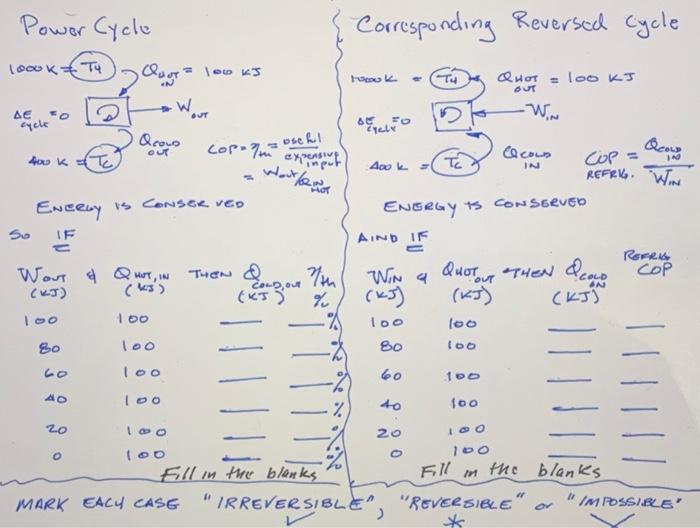 Power Cycle
1000 K = TH
QHOT IN = 100 KJ
ΔE cycle = 0
WOUT
QCOLD OUT
400 K = TC
COP = ηth = useful / expensive input
= Wout/QIN HOT
ENERGY IS CONSERVED
SO IF
WOUT & QHOT, IN THEN QCOLD, OUT ηth
(KJ) (KJ) (KJ) %
100 100 ___ ___%
80 100 ___ ___%
60 100 ___ ___%
40 100 ___ ___%
20 100 ___ ___%
0 100 ___ ___%
Fill in the blanks
Corresponding Reversed Cycle
1000 K = TH
QHOT OUT = 100 KJ
ΔE cycle = 0
WIN
400 K = TC
QCOLD IN
COP REFRIG. = QCOLD IN / WIN
ENERGY IS CONSERVED
AIND IF
WIN & QHOT OUT THEN QCOLD IN REFRIG COP
(KJ) (KJ) (KJ)
100 100 ___ ___
80 100 ___ ___
60 100 ___ ___
40 100 ___ ___
20 100 ___ ___
0 100 ___ ___
Fill in the blanks
MARK EACH CASE "IRREVERSIBLE", "REVERSIBLE" or "IMPOSSIBLE"
✓ *